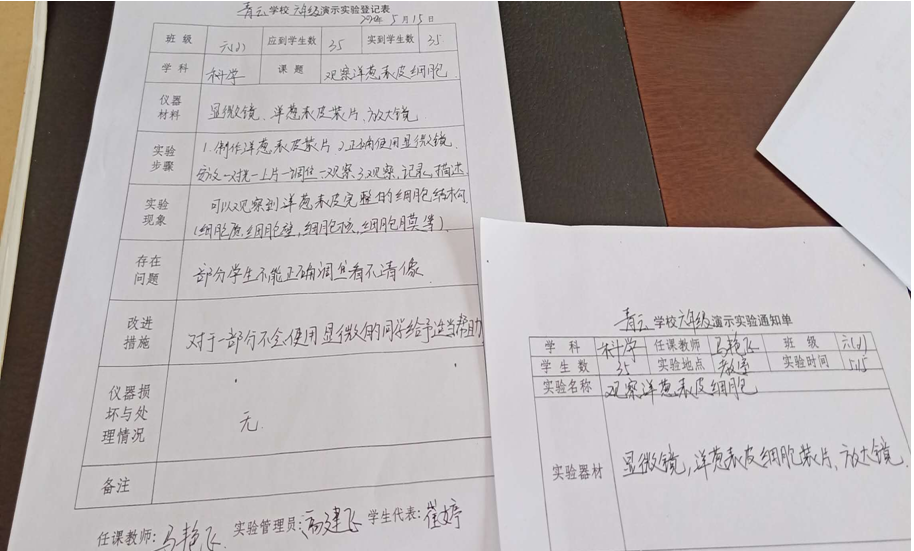 青云学校六年级演示实验登记表
5月15日
班级 六(1) 应到学生数 35 实到学生数 35
学科 科学 课题 观察洋葱表皮细胞
仪器材料 显微镜、洋葱表皮装片、放大镜
实验步骤 1.制作洋葱表皮装片 2.正确使用显微镜
安放一对光一上片一调焦一观察 3.观察、记录、描述
实验现象 可以观察到洋葱表皮完整的细胞结构
(细胞质,细胞壁,细胞核,细胞膜等).
存在问题 部分学生不能正确调焦看不清像
改进措施 对于一部分不会使用显微的同学给予适当帮助
仪器损坏与处理情况 无.
备注
任课教师:马艳飞 实验管理员:高建飞 学生代表:崔婷
青云学校六年级演示实验通知单
学科 科学 任课教师 马艳飞 班级 六(1)
学生数 35 实验地点 教室 实验时间 5.15
实验名称 观察洋葱表皮细胞
实验器材 显微镜,洋葱表皮细胞装片、放大镜.